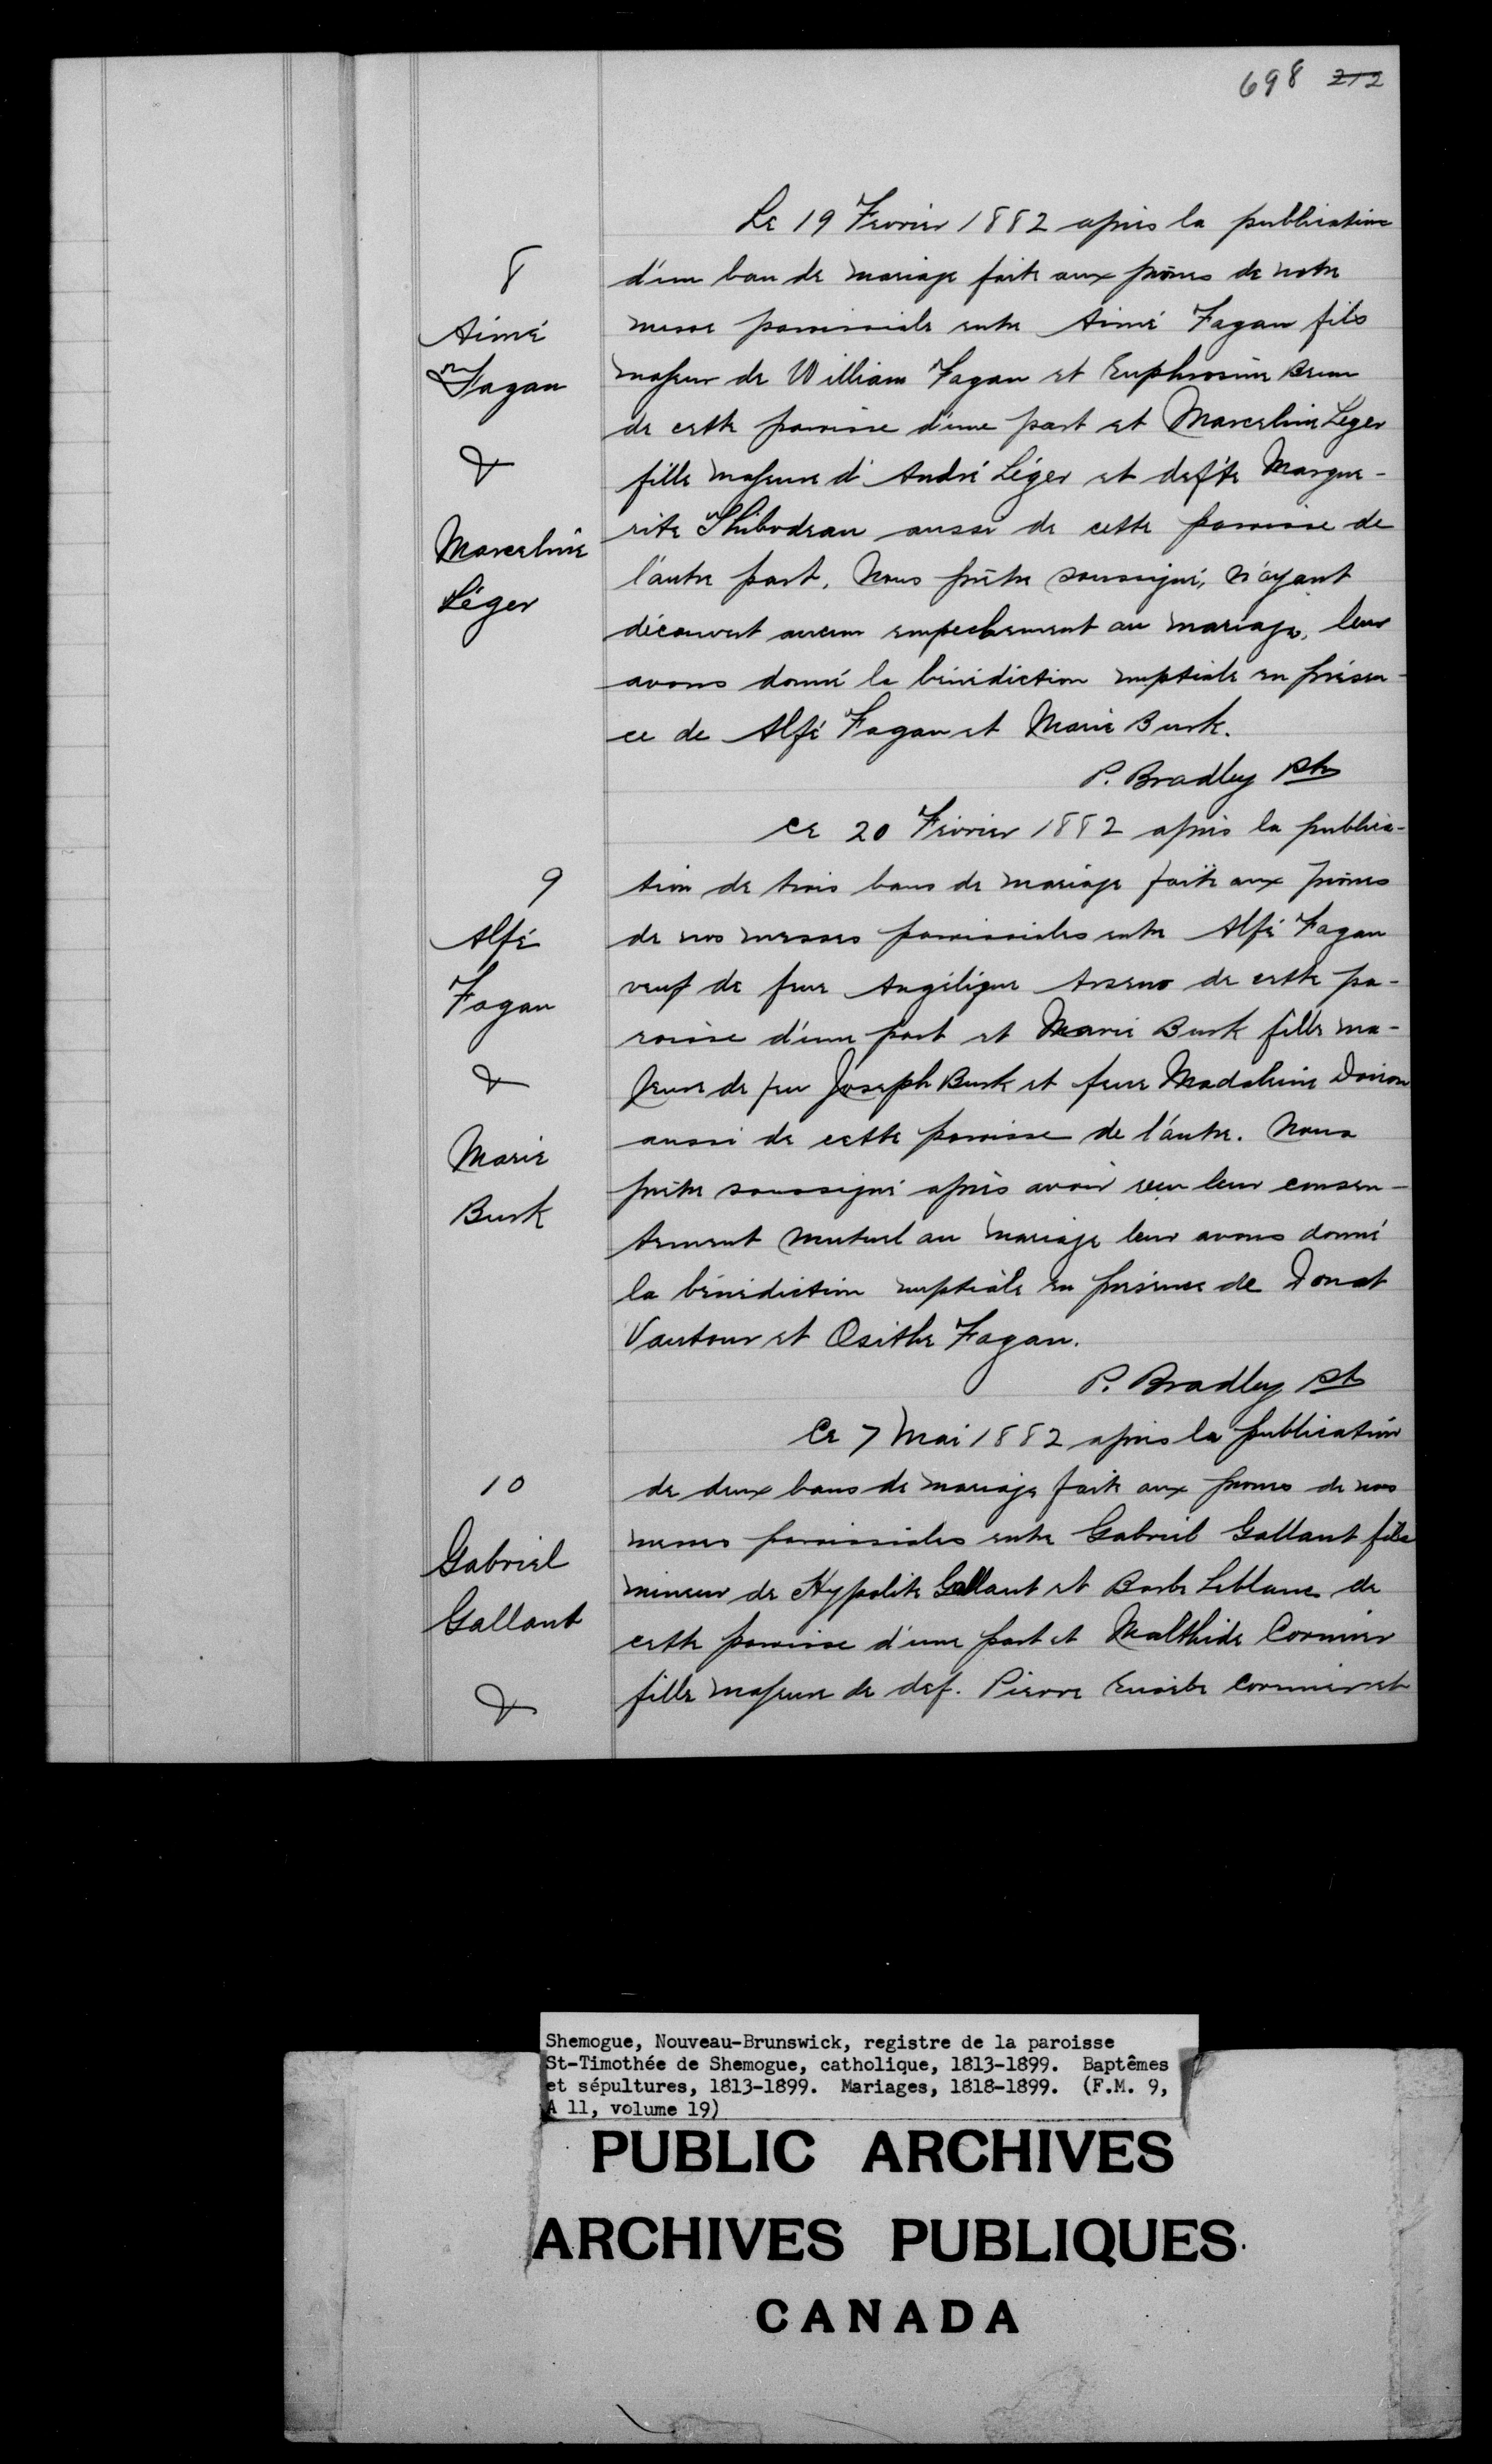 698 212
Le 19 Fevrier 1882 après la publication
8
d'un ban de mariage faite aux prônes de notre
Aimé
messe paroissiale entre Aimé Fagan fils
Fagan
majeur de William Fagan et Euphrosine Brun
de cette paroisse d'une part et Marceline Leger
&
fille majeure d'André Léger et deft'e Margue-
Marceline
rite Thibodeau aussi de cette paroisse de
Léger
l'autre part. Nous prêtre soussigné, n'ayant
découvert aucun empechement au mariage, leur
avons donné la bénédiction nuptiale en présen-
ce de Alfé Fagan et Marie Burk.
P. Bradley Ptr
Ce 20 Février 1882 après la publica-
9
tion de trois bans de mariage faite aux prônes
Alfé
de nos messes paroissiales entre Alfé Fagan
Fagan
veuf de feue Angélique Arseno de cette pa-
roisse d'une part et Marie Burk fille ma-
&
jeure de feu Joseph Burk et feue Madeleine Doiron
Marie
aussi de cette paroisse de l'autre. Nous
Burk
prêtre soussigné après avoir reçu leur consen-
tement mutuel au mariage leur avons donné
la bénédiction nuptiale en présence de Donat
Vautour et Osithe Fagan.
P. Bradley Pt
Ce 7 Mai 1882 après la publication
10
de deux bans de mariage faite aux prones de nos
Gabriel
messes paroissiales entre Gabriel Gallant fils
Gallant
mineur de Hypolite Gallant et Barbe Leblanc de
cette paroisse d'une part et Malthide Cormier
&
fille majeure de def. Pierre Eusèbe Cormier et
Shemogue, Nouveau-Brunswick, registre de la paroisse
St-Timothée de Shemogue, catholique, 1813-1899. Baptêmes
et sépultures, 1813-1899. Mariages, 1818-1899. (F.M. 9,
A 11, volume 19)
PUBLIC ARCHIVES
ARCHIVES PUBLIQUES
CANADA